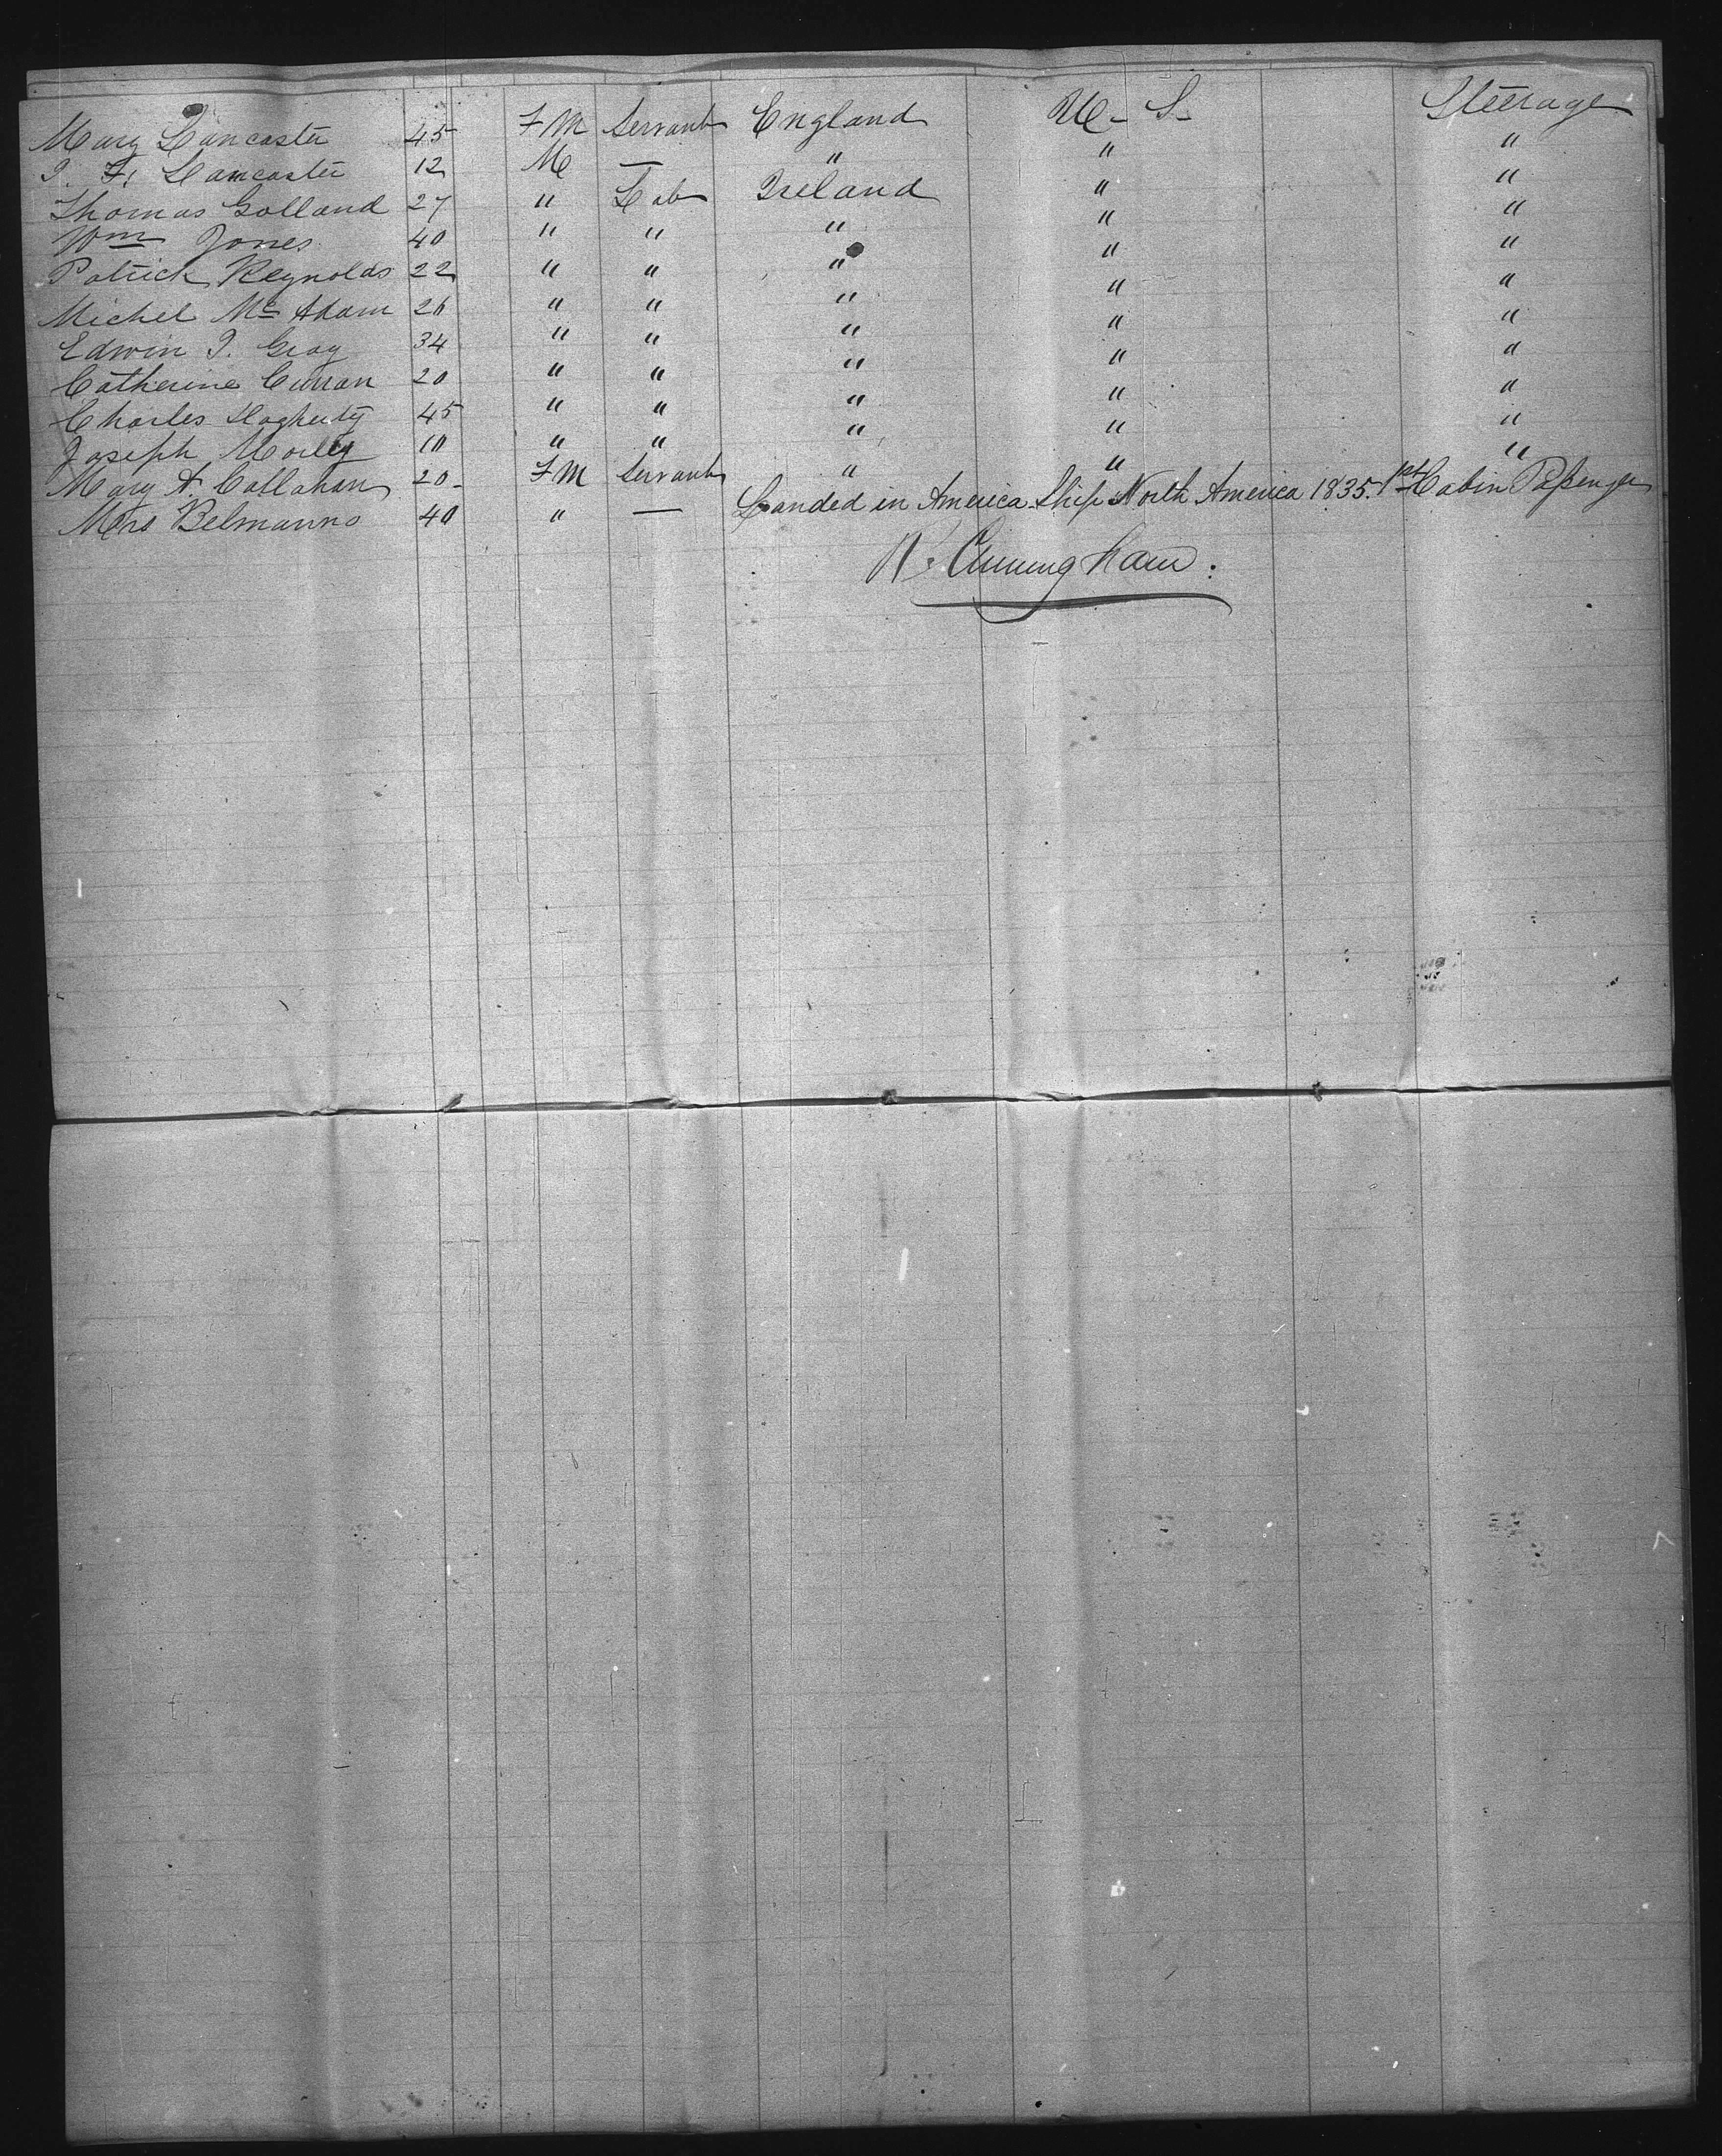 Mary Lancaster 45 F M Servant England U. S. Steerage
J. F. Lancaster 12 M — " " "
Thomas Golland 27 " Lab Ireland " "
Wm Jones 40 " " " " "
Patrick Reynolds 22 " " " " "
Michel Mc Adam 26 " " " " "
Edwin J. Gray 34 " " " " "
Catherine Curran 20 " " " " "
Charles Hagherty 45 " " " " "
Joseph Morley 10 " " " " "
Mary A. Callahan 20 F M Servant " " "
Mrs Belmanno 40 " — Landed in America Ship North America 1835. 1st Cabin Passenger
Cunningham.